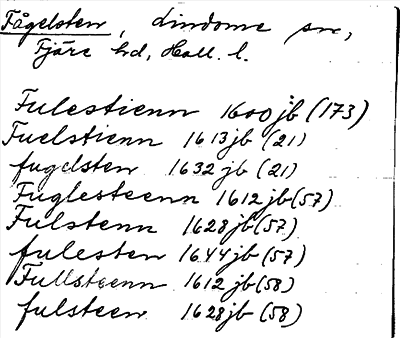 Fågelsten, Lindome sn,
Fjäre hd, Hall. l.
Fulestienn 1600 jb (173)
Fuelstienn 1613 jb (21)
fugelsten 1632 jb (21)
Fuglesteenn 1612 jb (57)
Fulstenn 1628 jb (57)
fulesten 1644 jb (57)
Fullsteenn 1612 jb (58)
fulsteen 1628 jb (58)